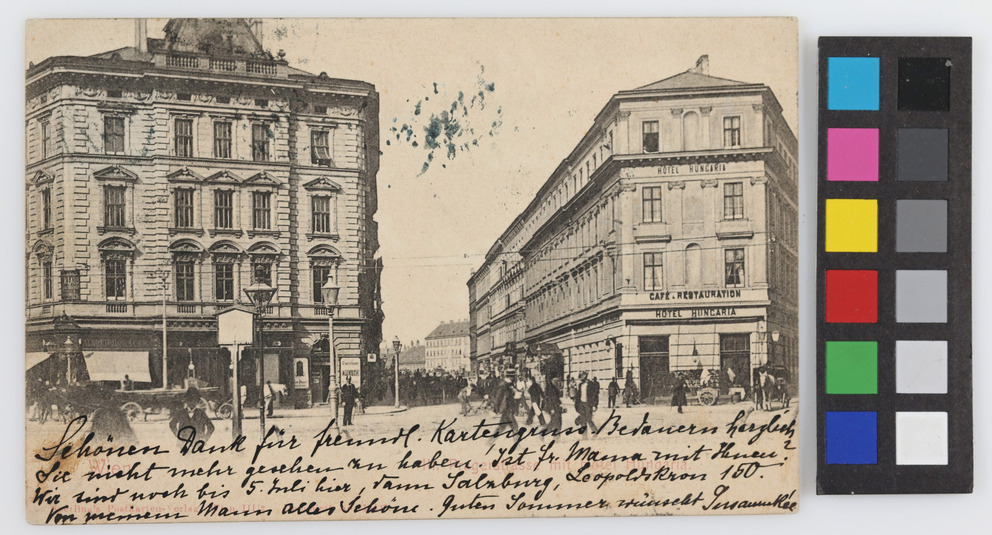 HÔTEL HUNGARIA
CAFÉ & RESTAURATION
HOTEL HUNGARIA
Schönen Dank für freundl. Kartengruss! Bedauern herzlich
Sie nicht mehr gesehen zu haben! Ist Fr. Mama mit Ihnen?
Wir sind noch bis 5. Juli hier, dann Salzburg, Leopoldskron 150.
Von meinem Mann alles Schöne. Guten Sommer wünscht
Wien
mit Hotel Hungaria.
Postkarten-Verlag